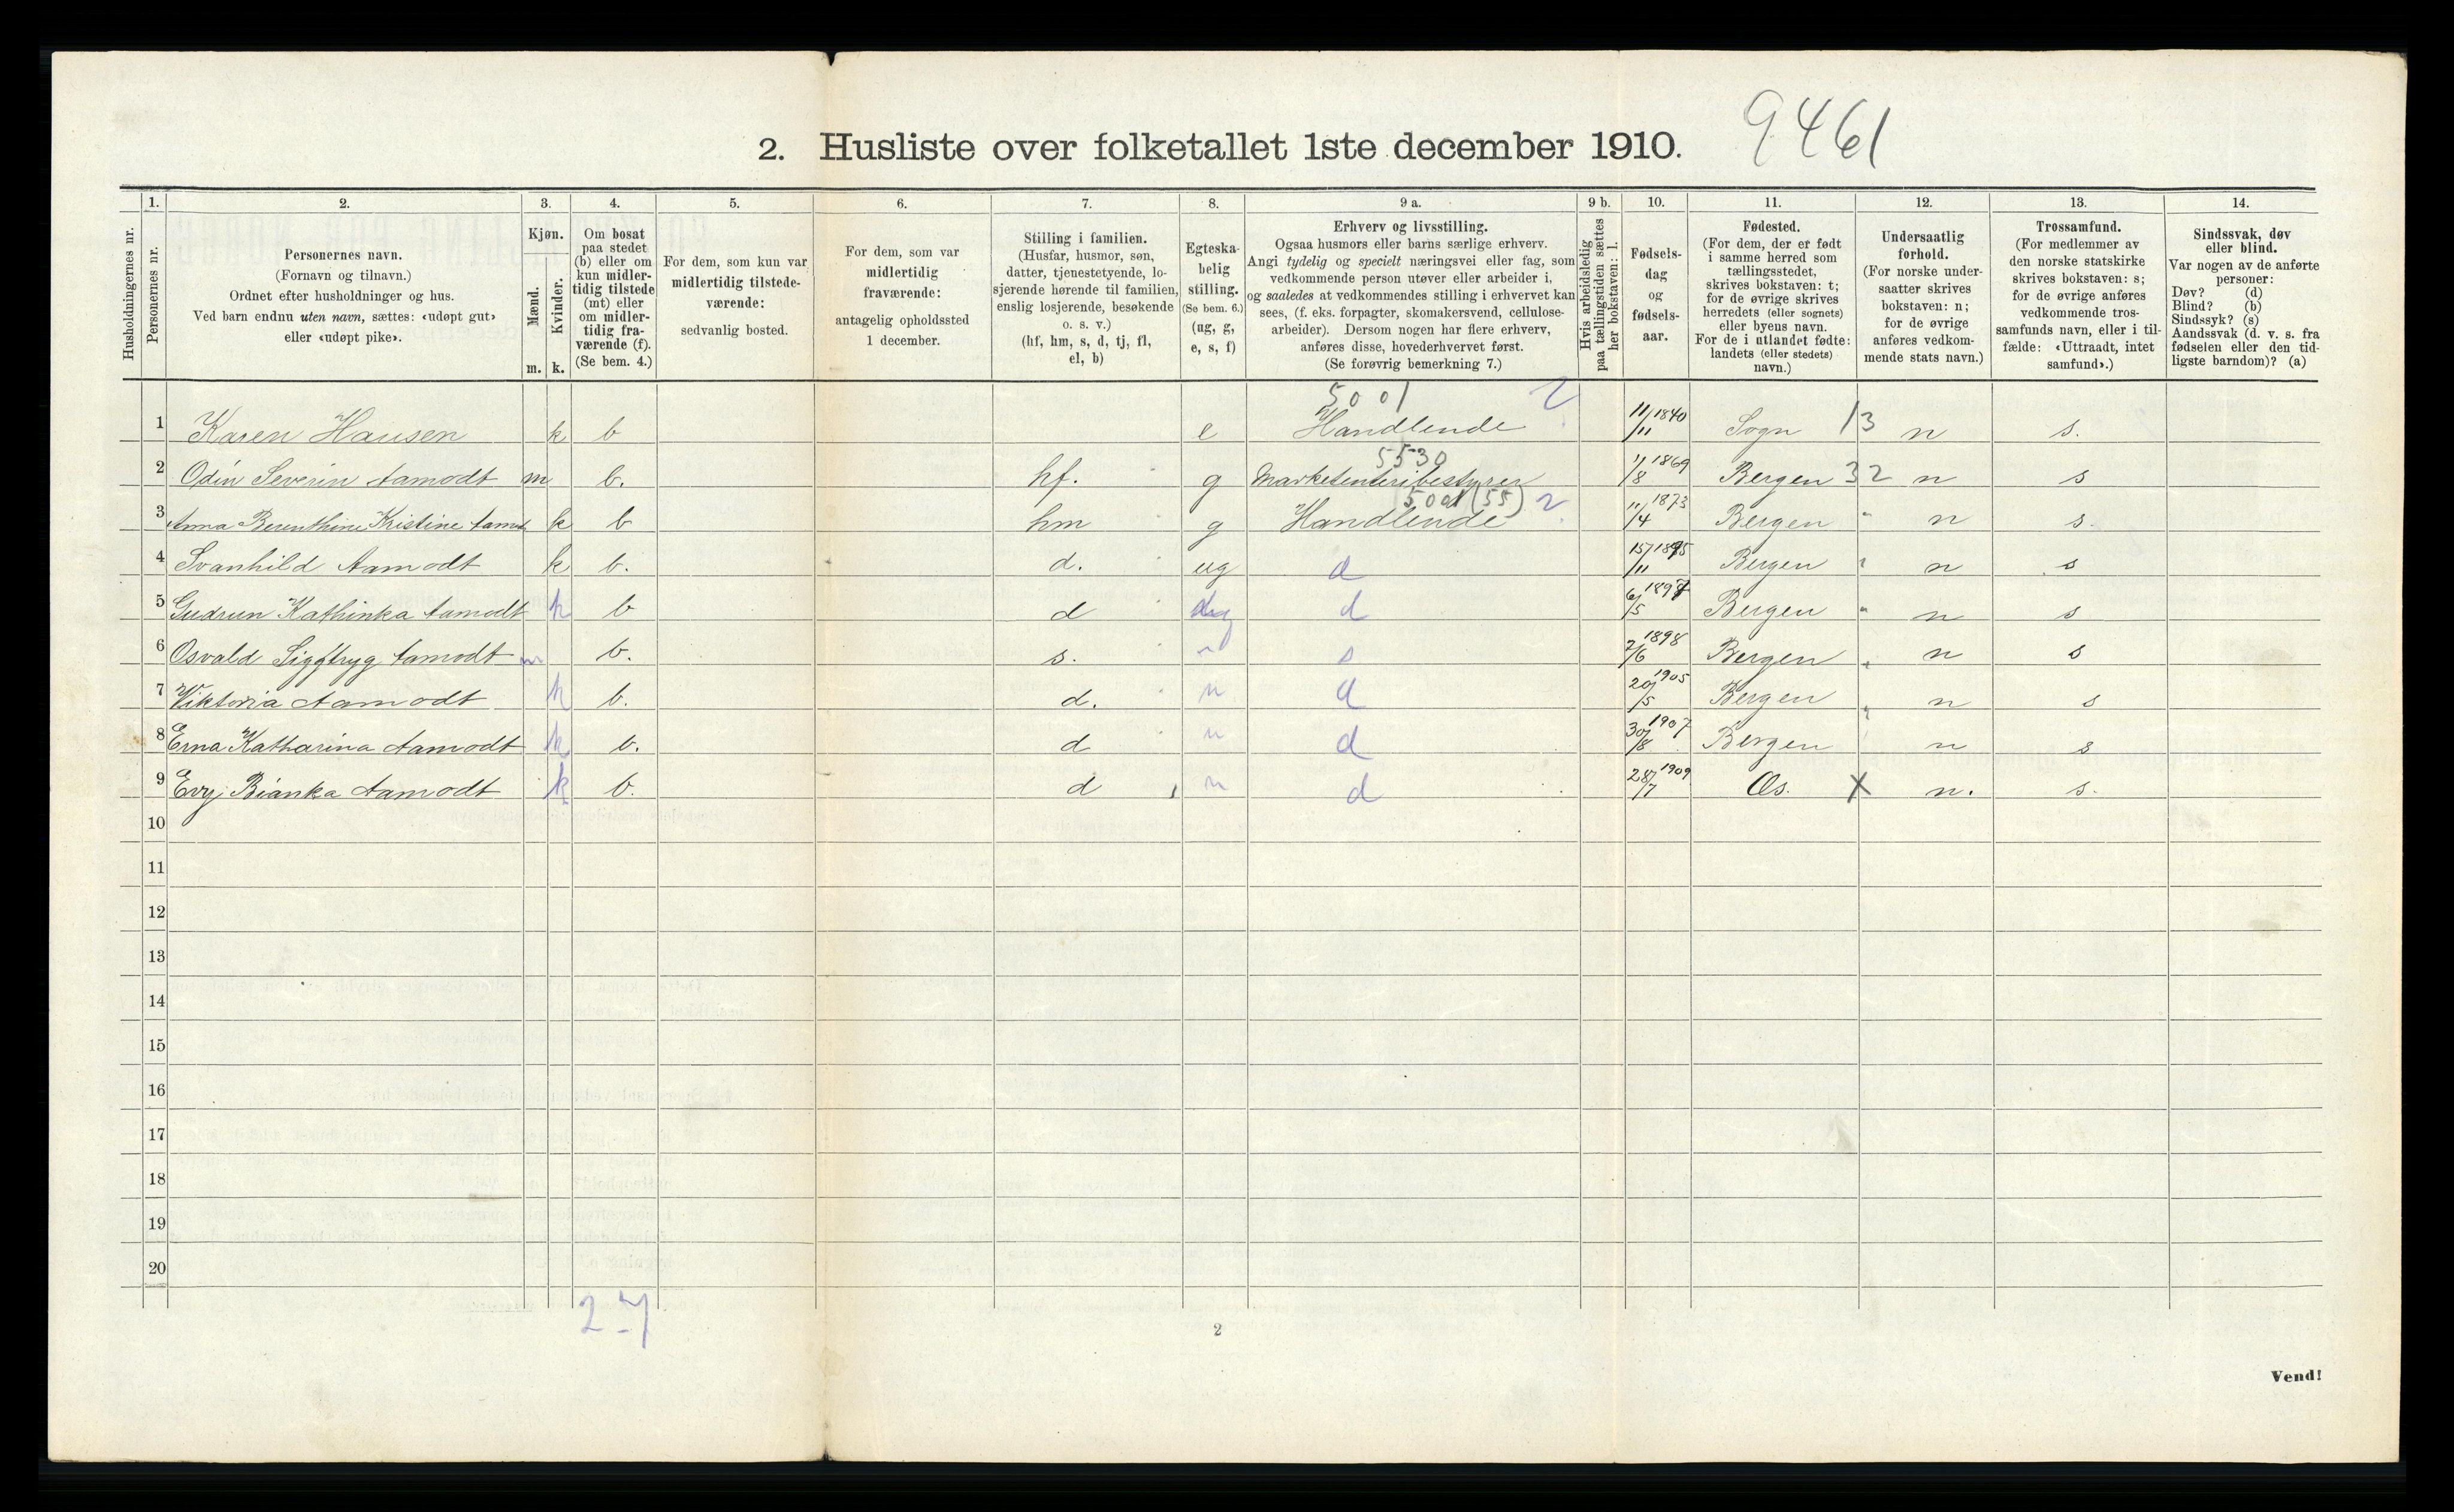 2. Husliste over folketallet 1ste december 1910. 9461
Husholdningernes nr.
1. Personernes nr.
2. Personernes navn. (Fornavn og tilnavn.) Ordnet efter husholdninger og hus. Ved barn endnu uten navn, sættes: «udøpt gut» eller «udøpt pike».
3. Kjøn. Mænd. Kvinder. m. k.
4. Om bosat paa stedet (b) eller om kun midlertidig tilstede (mt) eller om midlertidig fraværende (f). (Se bem. 4.)
5. For dem, som kun var midlertidig tilstedeværende: sedvanlig bosted.
6. For dem, som var midlertidig fraværende: antagelig opholdssted 1 december.
7. Stilling i familien. (Husfar, husmor, søn, datter, tjenestetyende, losjerende hørende til familien, enslig losjerende, besøkende o. s. v.) (hf, hm, s, d, tj, fl, el, b)
8. Egteskabelig stilling. (Se bem. 6.) (ug, g, e, s, f)
9 a. Erhverv og livsstilling. Ogsaa husmors eller barns særlige erhverv. Angi tydelig og specielt næringsvei eller fag, som vedkommende person utøver eller arbeider i, og saaledes at vedkommendes stilling i erhvervet kan sees, (f. eks. forpagter, skomakersvend, cellulosearbeider). Dersom nogen har flere erhverv, anføres disse, hovederhvervet først. (Se forøvrig bemerkning 7.)
9 b. Hvis arbeidsledig paa tællingstiden sættes her bokstaven: l.
10. Fødselsdag og fødselsaar.
11. Fødested. (For dem, der er født i samme herred som tællingsstedet, skrives bokstaven: t; for de øvrige skrives herredets (eller sognets) eller byens navn. For de i utlandet fødte: landets (eller stedets) navn.)
12. Undersaatlig forhold. (For norske undersaatter skrives bokstaven: n; for de øvrige anføres vedkommende stats navn.)
13. Trossamfund. (For medlemmer av den norske statskirke skrives bokstaven: s; for de øvrige anføres vedkommende trossamfunds navn, eller i tilfælde: «Uttraadt, intet samfund».)
14. Sindssvak, døv eller blind. Var nogen av de anførte personer: Døv? (d) Blind? (b) Sindssyk? (s) Aandssvak (d. v. s. fra fødselen eller den tidligste barndom)? (a)
5001 2
1 Karen Hansen k b e Handlende 11/11 1840 Sogn 13 n s.
5530
2 Odin Severin Aamodt m b. hf. g Marketenteribestyrer 1/8 1869 Bergen 32 n s
5001 (55) 2
3 Anna Berenthine Kristine Aamodt k b hm g Handlende 11/4 1873 Bergen " n s.
4 Svanhild Aamodt k b. d. ug d 15/11 1895 Bergen " n s
5 Gudrun Kathinka Aamodt k b d ug d 6/5 1897 Bergen " n s
6 Osvald Sigftryg Aamodt m b. s. " s 7/6 1898 Bergen " n s
7 Viktoria Aamodt k b. d. " d 20/5 1905 Bergen " n s
8 Erna Katharina Aamodt k b. d " d 30/8 1907 Bergen " n s
9 Evy Bianka Aamodt k b. d " d 28/7 1909 Os. X n. s.
10
11
12
13
14
15
16
17
18
19
20
2-7
2
Vend!